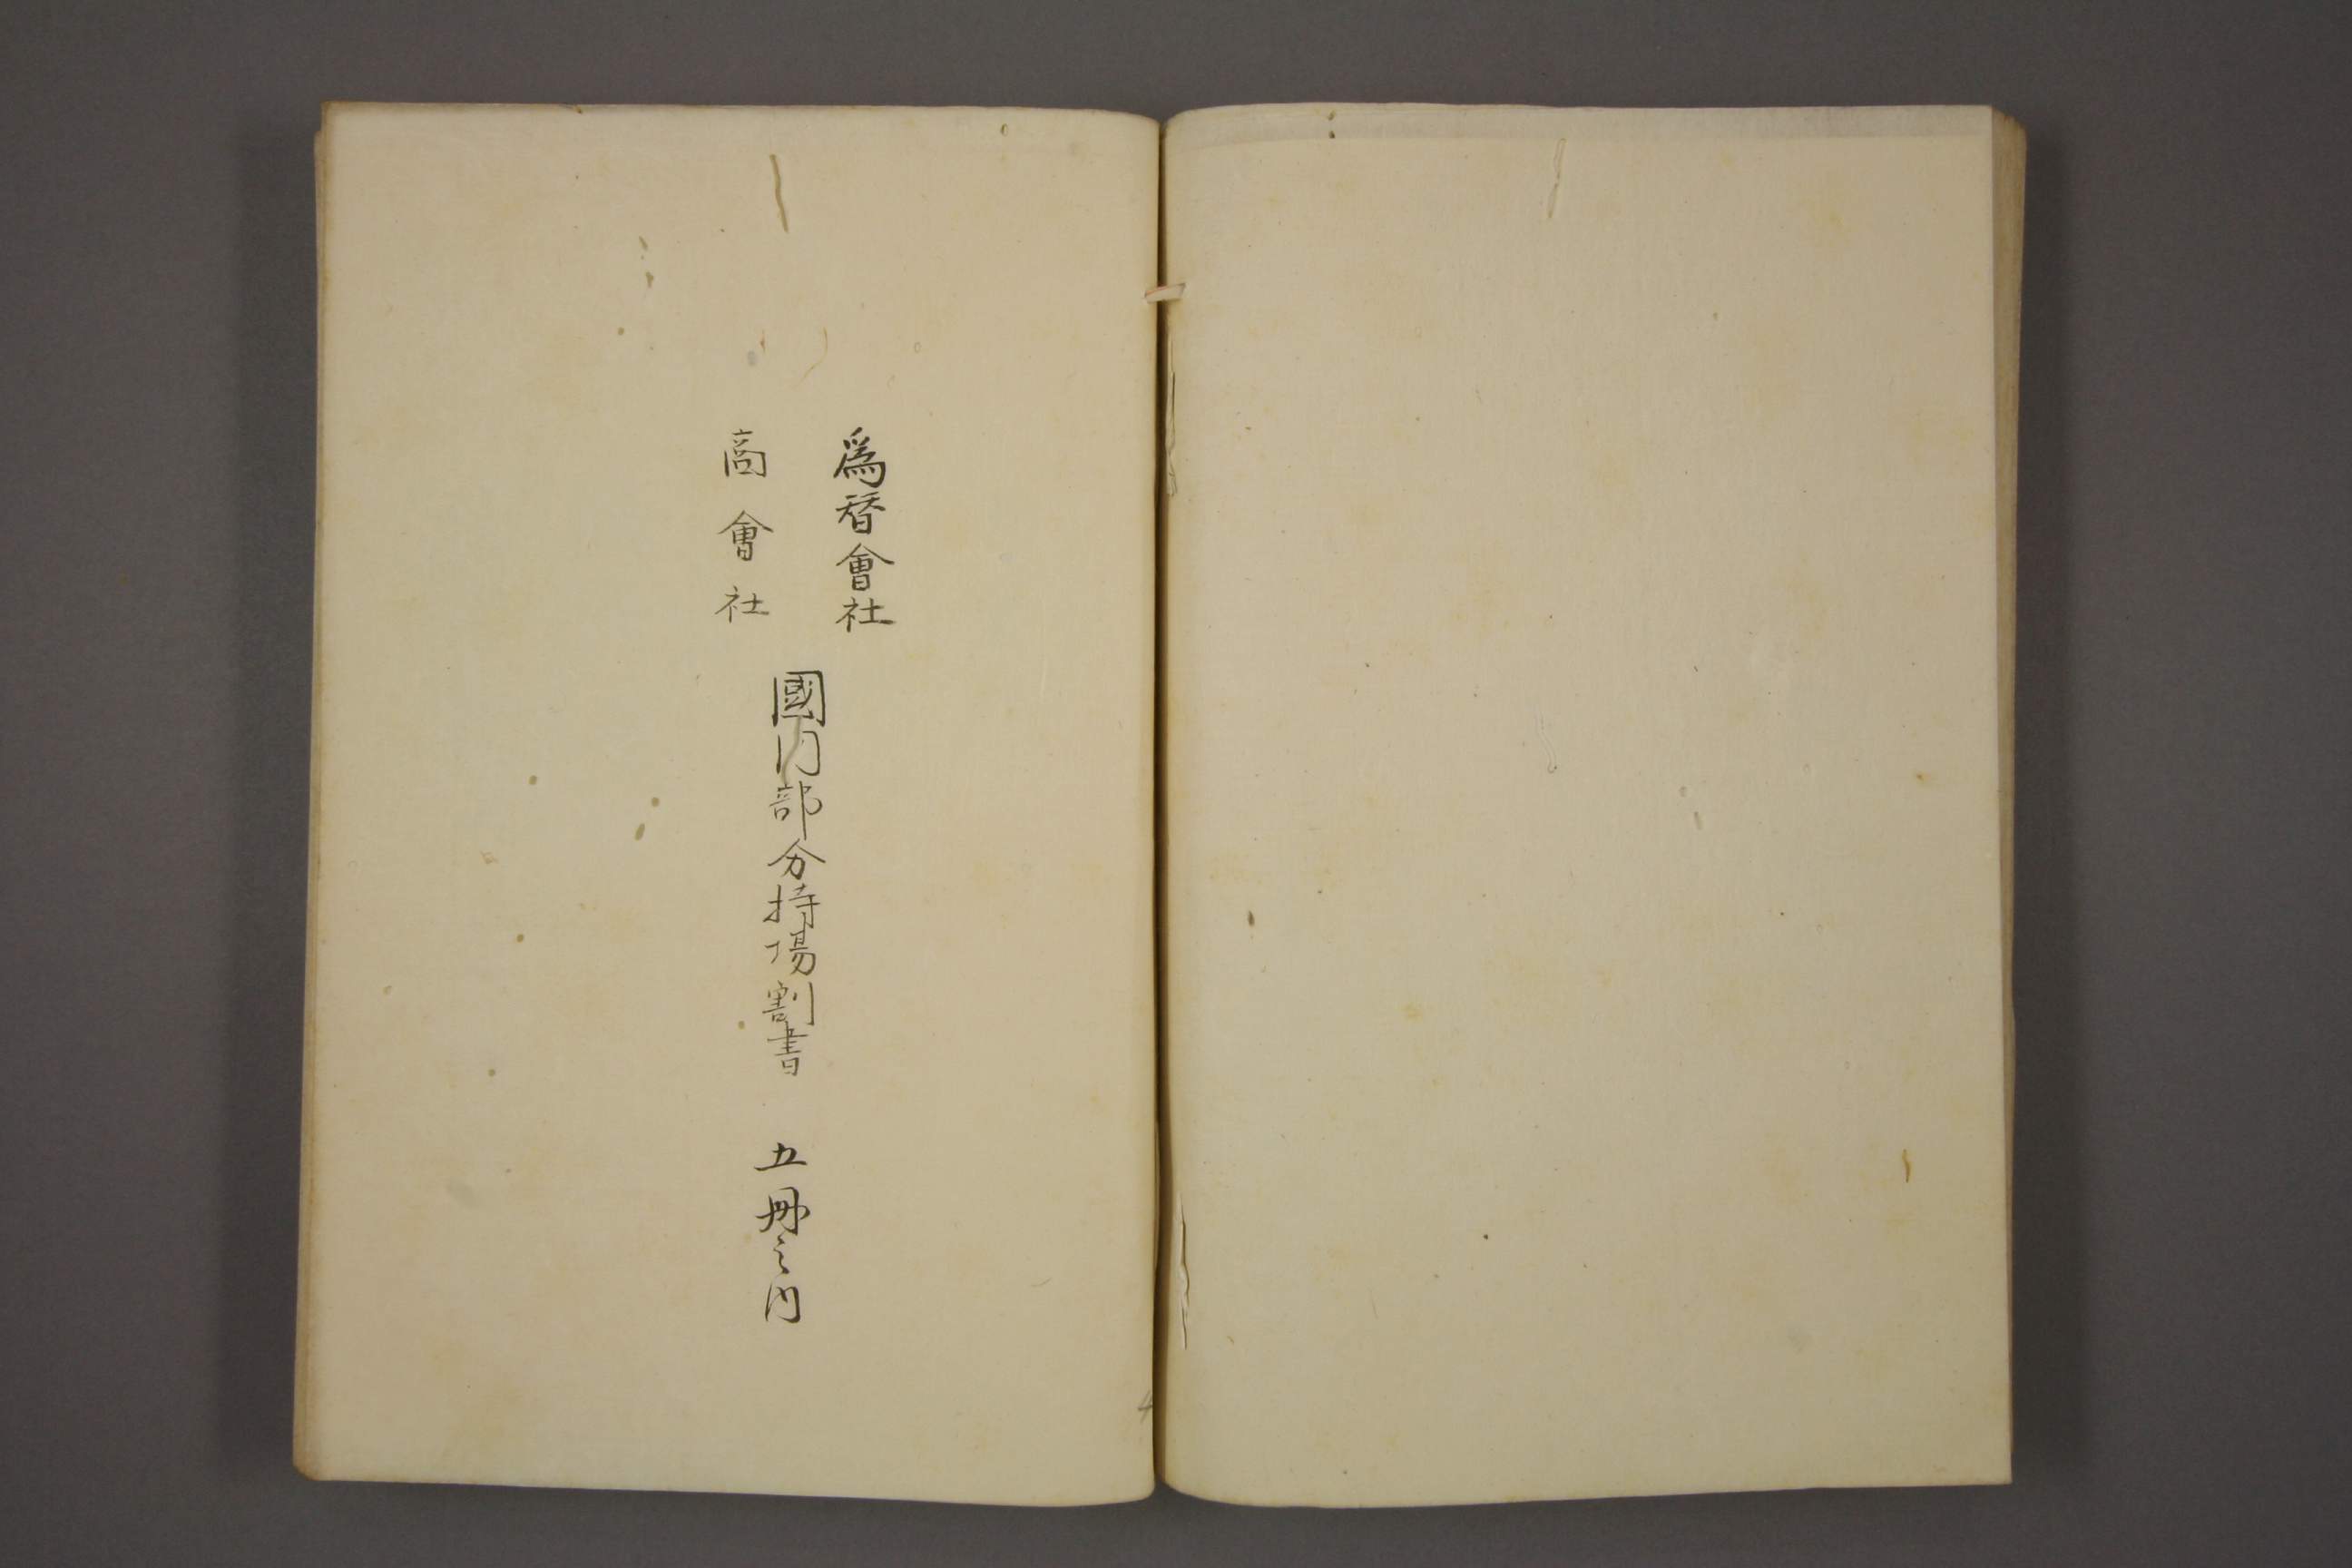 爲替會社
商會社
國内部分持場割書　五冊之内
4